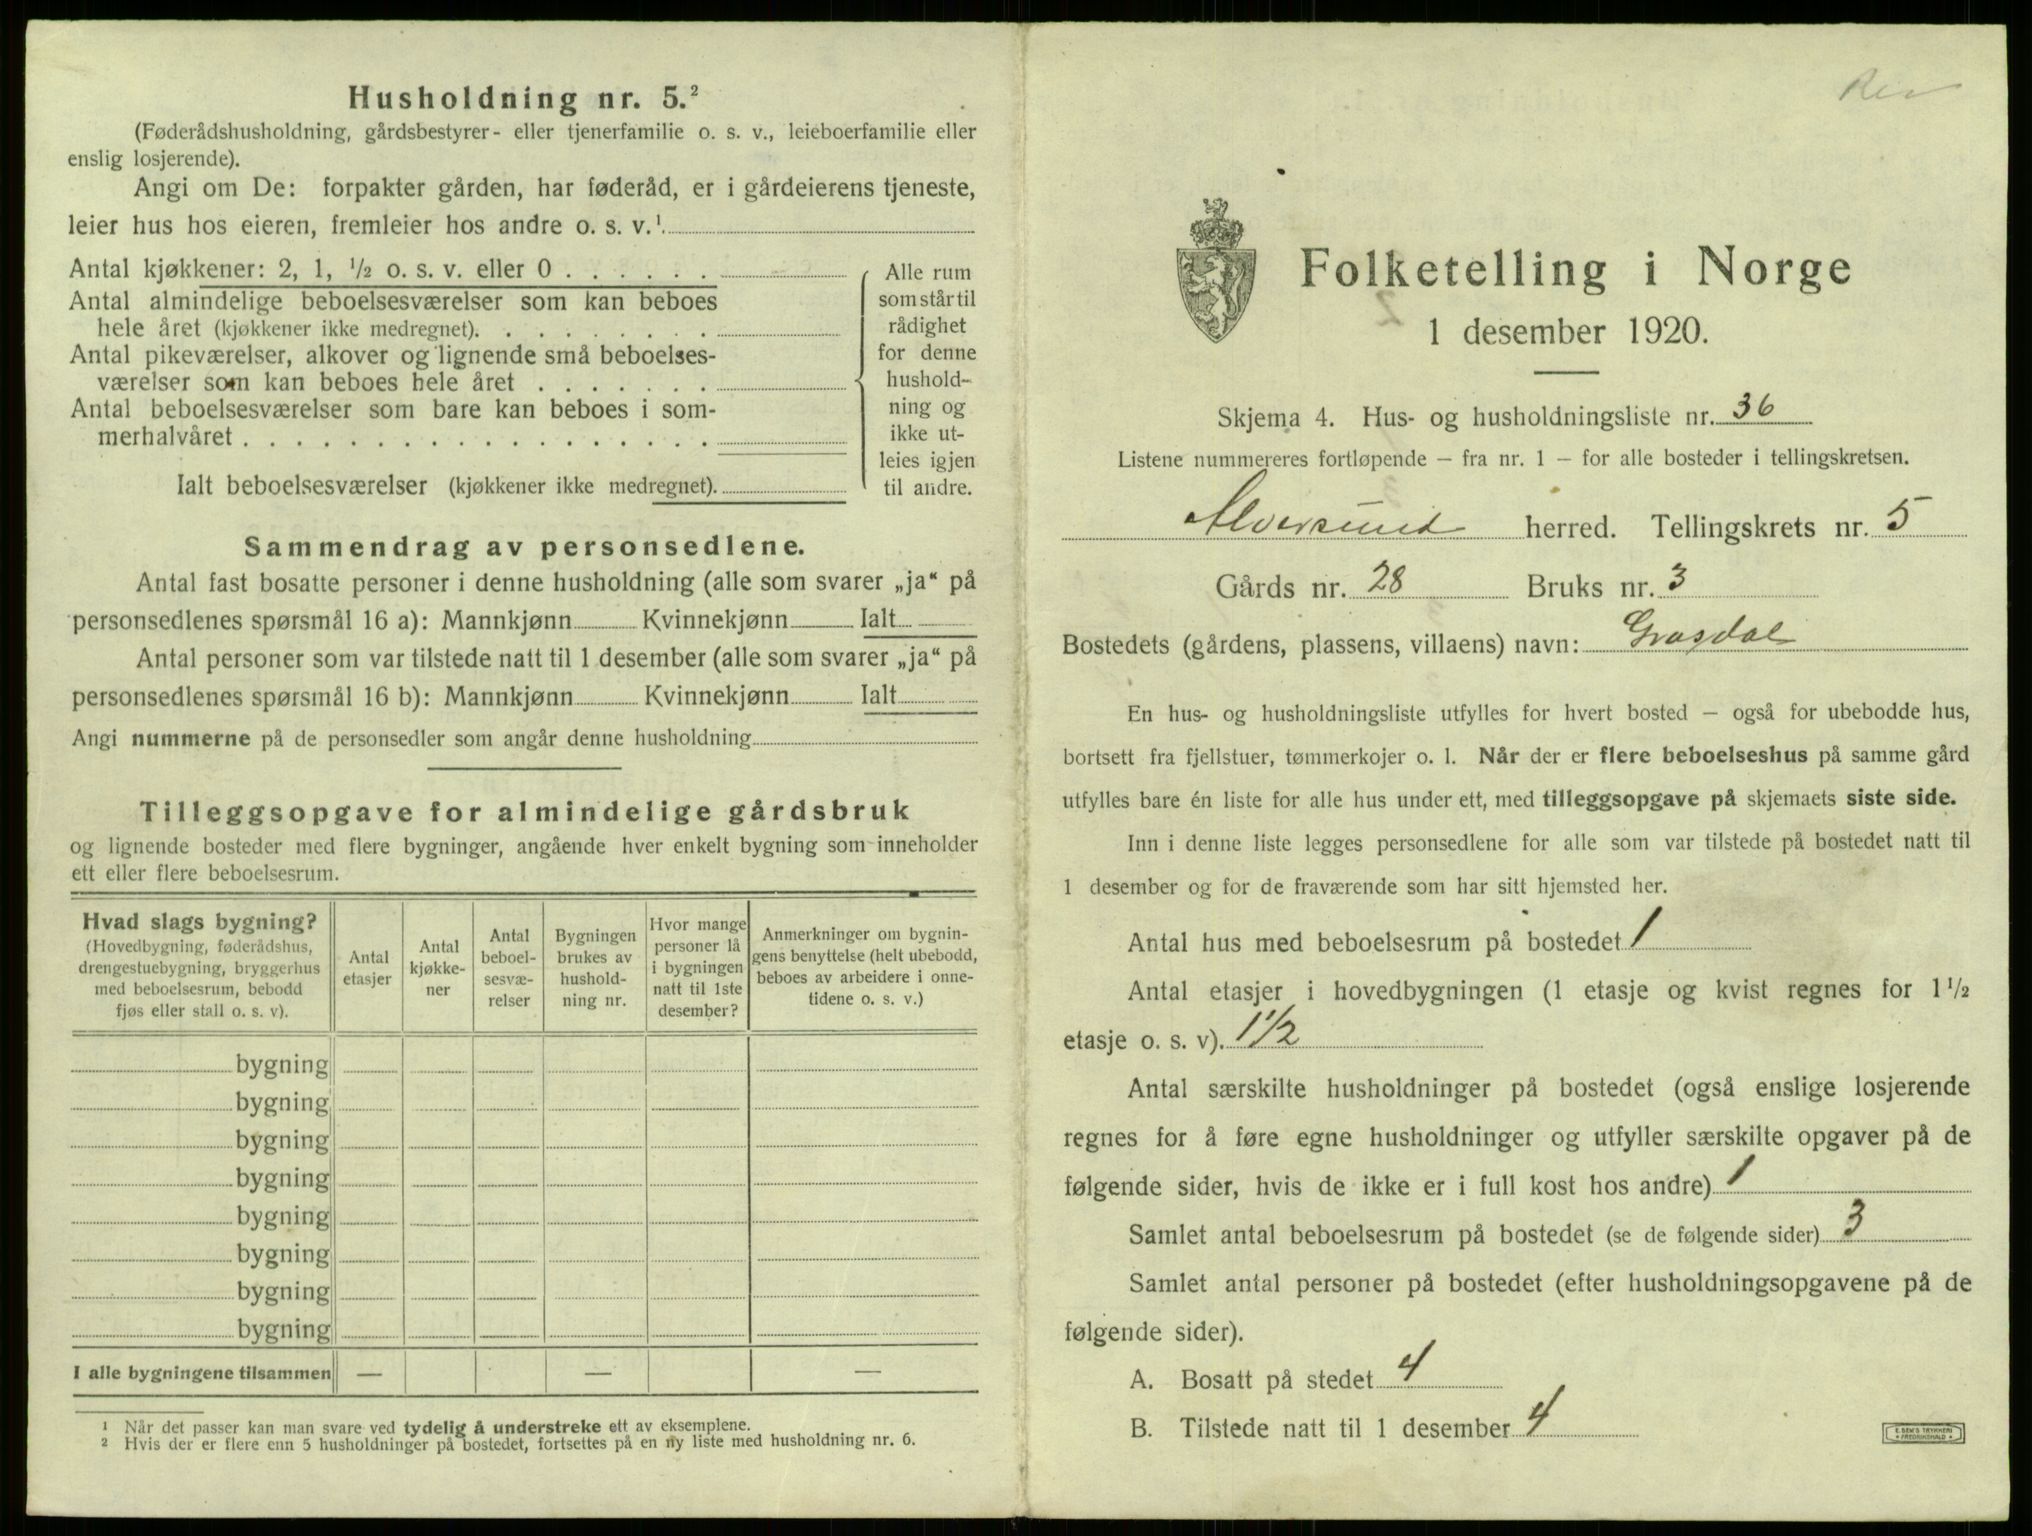 Husholdning nr. 5.²
(Føderådshusholdning, gårdsbestyrer- eller tjenerfamilie o. s. v., leieboerfamilie eller
enslig losjerende).
Angi om De: forpakter gården, har føderåd, er i gårdeierens tjeneste,
leier hus hos eieren, fremleier hos andre o. s. v.¹
Antal kjøkkener: 2, 1, ½ o. s. v. eller 0 . . . . . .
Antal almindelige beboelsesværelser som kan beboes
hele året (kjøkkener ikke medregnet). . . . . . . . .
Antal pikeværelser, alkover og lignende små beboelses-
værelser som kan beboes hele året . . . . . . .
Antal beboelsesværelser som bare kan beboes i som-
merhalvåret . . . . . . . . . . . . . . . . . .
Ialt beboelsesværelser (kjøkkener ikke medregnet).
Alle rum
som står til
rådighet
for denne
hushold-
ning og
ikke ut-
leies igjen
til andre.
Sammendrag av personsedlene.
Antal fast bosatte personer i denne husholdning (alle som svarer „ja“ på
personsedlenes spørsmål 16 a): Mannkjønn Kvinnekjønn Ialt
Antal personer som var tilstede natt til 1 desember (alle som svarer „ja“ på
personsedlenes spørsmål 16 b): Mannkjønn Kvinnekjønn Ialt
Angi nummerne på de personsedler som angår denne husholdning
Tilleggsopgave for almindelige gårdsbruk
og lignende bosteder med flere bygninger, angående hver enkelt bygning som inneholder
ett eller flere beboelsesrum.
Hvad slags bygning?
(Hovedbygning, føderådshus,
drengestuebygning, bryggerhus
med beboelsesrum, bebodd
fjøs eller stall o. s. v).
Antal
etasjer
Antal
kjøkke-
ner
Antal
beboel-
sesvæ-
relser
Bygningen
brukes av
hushold-
ning nr.
Hvor mange
personer lå
i bygningen
natt til 1ste
desember?
Anmerkninger om bygnin-
gens benyttelse (helt ubebodd,
beboes av arbeidere i onne-
tidene o. s. v.)
bygning
bygning
bygning
bygning
bygning
bygning
bygning
bygning
I alle bygningene tilsammen — — —
¹ Når det passer kan man svare ved tydelig å understreke ett av eksemplene.
² Hvis der er flere enn 5 husholdninger på bostedet, fortsettes på en ny liste med husholdning nr. 6.
Rev
Folketelling i Norge
1 desember 1920.
Skjema 4. Hus- og husholdningsliste nr. 36
Listene nummereres fortløpende — fra nr. 1 — for alle bosteder i tellingskretsen.
Alversund herred. Tellingskrets nr. 5
Gårds nr. 28 Bruks nr. 3
Bostedets (gårdens, plassens, villaens) navn: Grasdal
En hus- og husholdningsliste utfylles for hvert bosted — også for ubebodde hus,
bortsett fra fjellstuer, tømmerkojer o. l. Når der er flere beboelseshus på samme gård
utfylles bare én liste for alle hus under ett, med tilleggsopgave på skjemaets siste side.
Inn i denne liste legges personsedlene for alle som var tilstede på bostedet natt til
1 desember og for de fraværende som har sitt hjemsted her.
Antal hus med beboelsesrum på bostedet 1
Antal etasjer i hovedbygningen (1 etasje og kvist regnes for 1½
etasje o. s. v). 1½
Antal særskilte husholdninger på bostedet (også enslige losjerende
regnes for å føre egne husholdninger og utfyller særskilte opgaver på de
følgende sider, hvis de ikke er i full kost hos andre) 1
Samlet antal beboelsesrum på bostedet (se de følgende sider) 3
Samlet antal personer på bostedet (efter husholdningsopgavene på de
følgende sider).
A. Bosatt på stedet 4
B. Tilstede natt til 1 desember 4
E. SEM'S TRYKKERI
• FREDRIKSHALD •